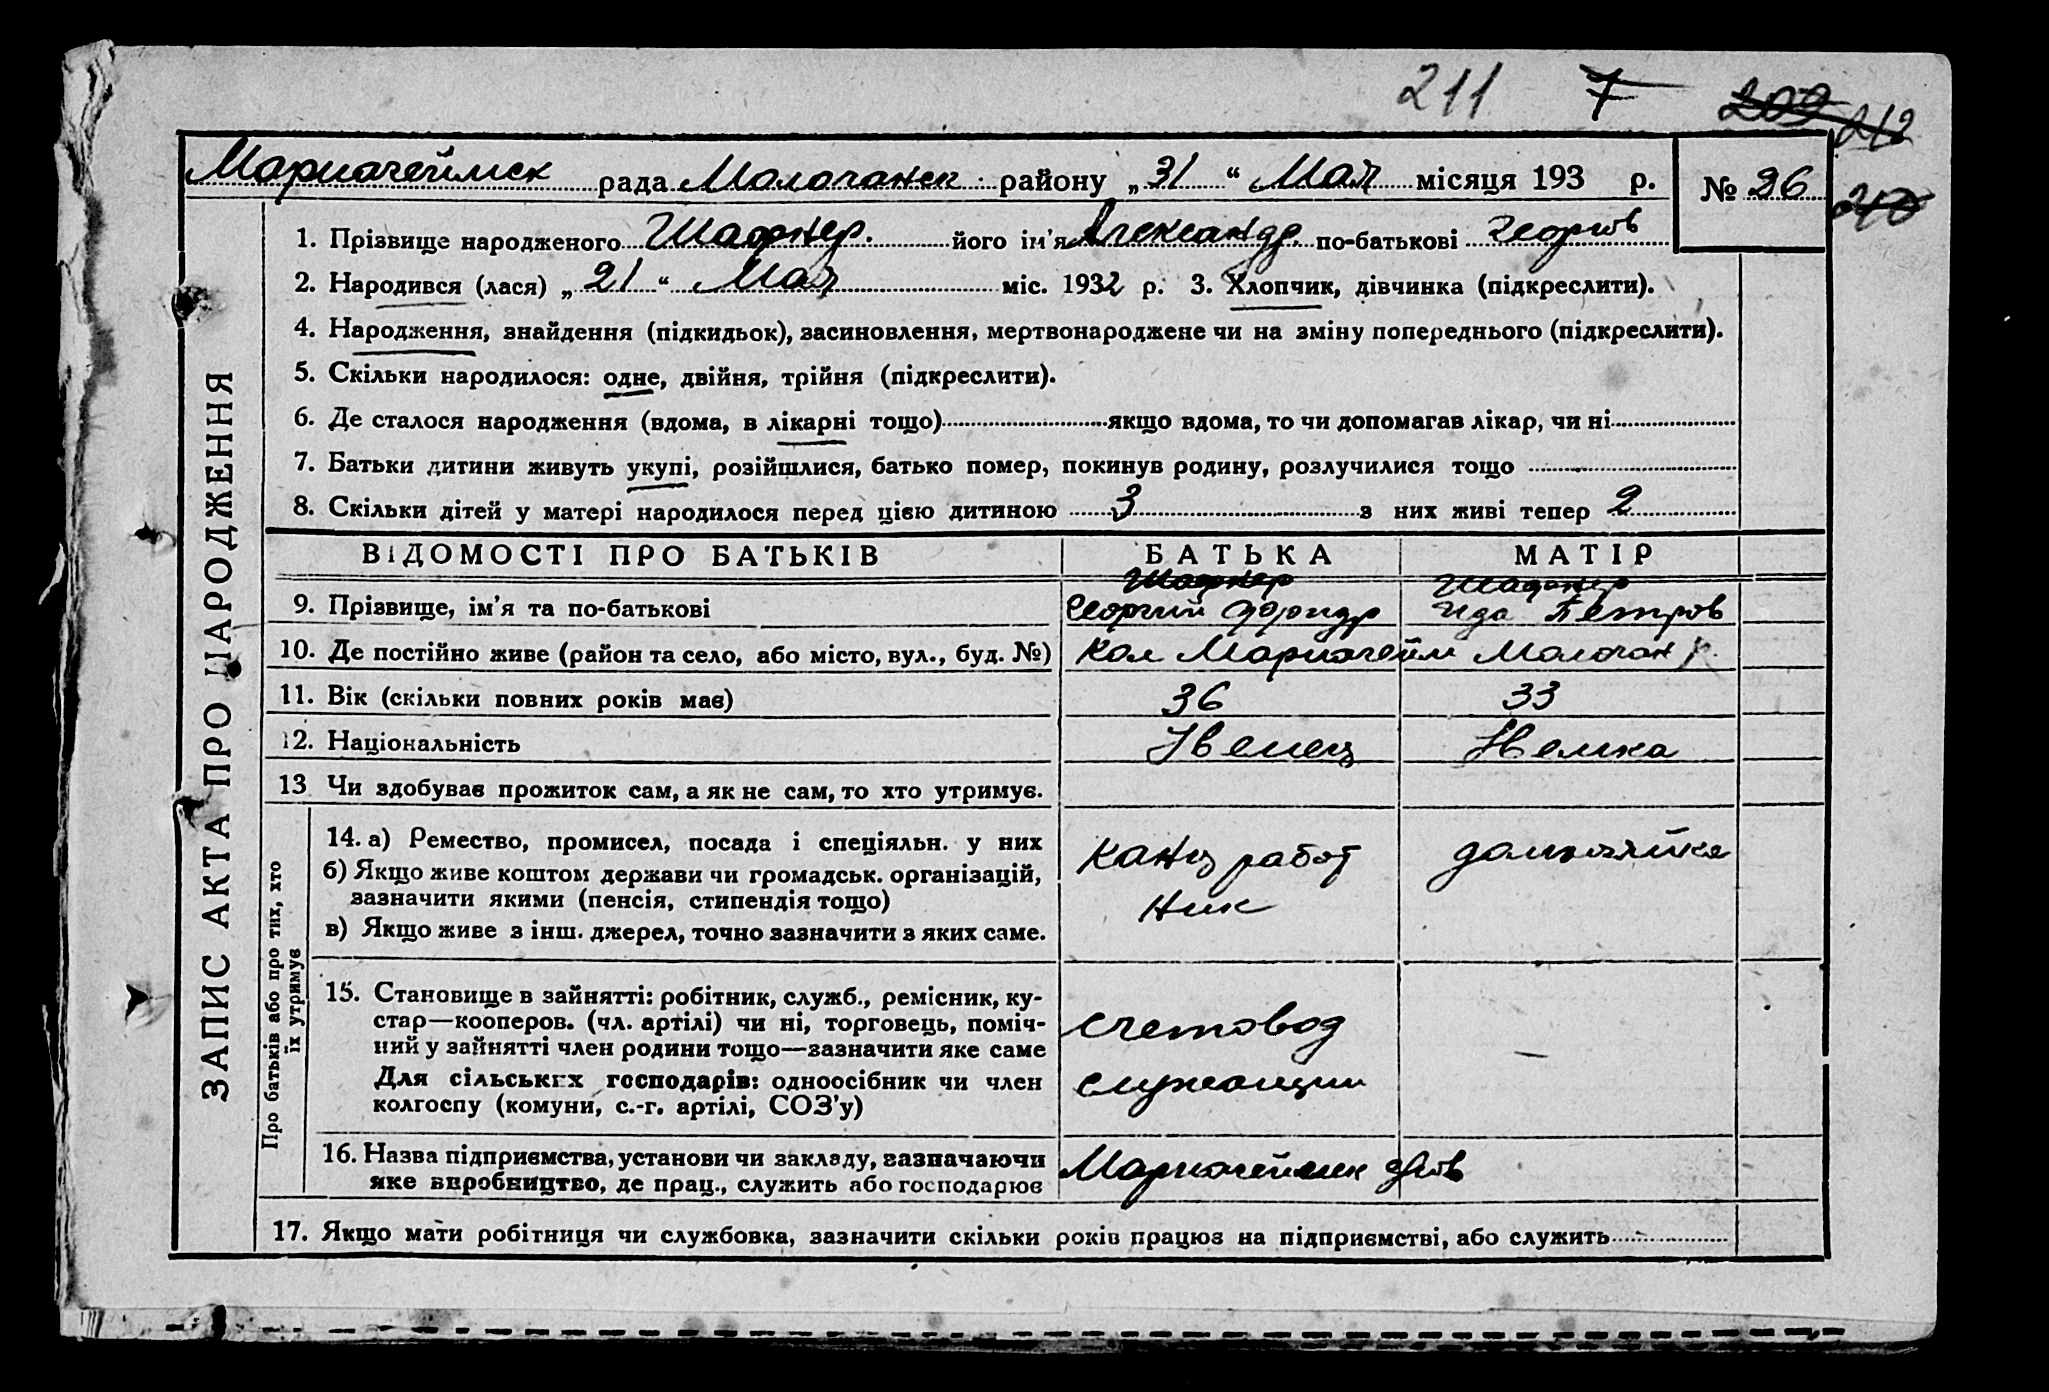 211 7 209 212
Мариагеймск рада Молочанск району „31“ Мая місяця 193 р. № 26
210
1. Прізвище народженого Шафнер. його ім'я Александр. по-батькові Георгов
2. Народився (лася) „21“ Мая міс. 1932 р. 3. Хлопчик, дівчинка (підкреслити).
4. Народження, знайдення (підкидьок), засиновлення, мертвонароджене чи на зміну попереднього (підкреслити).
5. Скільки народилося: одне, двійня, трійня (підкреслити).
6. Де сталося народження (вдома, в лікарні тощо) якщо вдома, то чи допомагав лікар, чи ні
7. Батьки дитини живуть укупі, розійшлися, батько помер, покинув родину, розлучилися тощо
8. Скільки дітей у матері народилося перед цією дитиною 3 з них живі тепер 2
ЗАПИС АКТА ПРО НАРОДЖЕННЯ
ВІДОМОСТІ ПРО БАТЬКІВ БАТЬКА МАТІР
Шафнер Шафнер
9. Прізвище, ім'я та по-батькові Георгий Фридр Ида Петров
10. Де постійно живе (район та село, або місто, вул., буд. №) Кол Мариагейм Молочан р.
11. Вік (скільки повних років має) 36 33
12. Національність Немец Немка
13 Чи здобуває прожиток сам, а як не сам, то хто утримує.
Про батьків або про тих, хто
їх утримує
14. а) Ремество, промисел, посада і спеціяльн. у них
б) Якщо живе коштом держави чи громадськ. організацій,
зазначити якими (пенсія, стипендія тощо)
в) Якщо живе з інш. джерел, точно зазначити з яких саме.
канц работ домохозяйка
ник
15. Становище в зайнятті: робітник, служб., ремісник, ку-
стар—кооперов. (чл. артілі) чи ні, торговець, поміч-
ний у зайнятті член родини тощо—зазначити яке саме
Для сільських господарів: одноосібник чи член
колгоспу (комуни, с.-г. артілі, СОЗ'у)
счетовод —
служащий
16. Назва підприємства, установи чи закладу, зазначаючи
яке виробництво, де прац., служить або господарює
Мариагеймск
17. Якщо мати робітниця чи службовка, зазначити скільки років працює на підприємстві, або служить